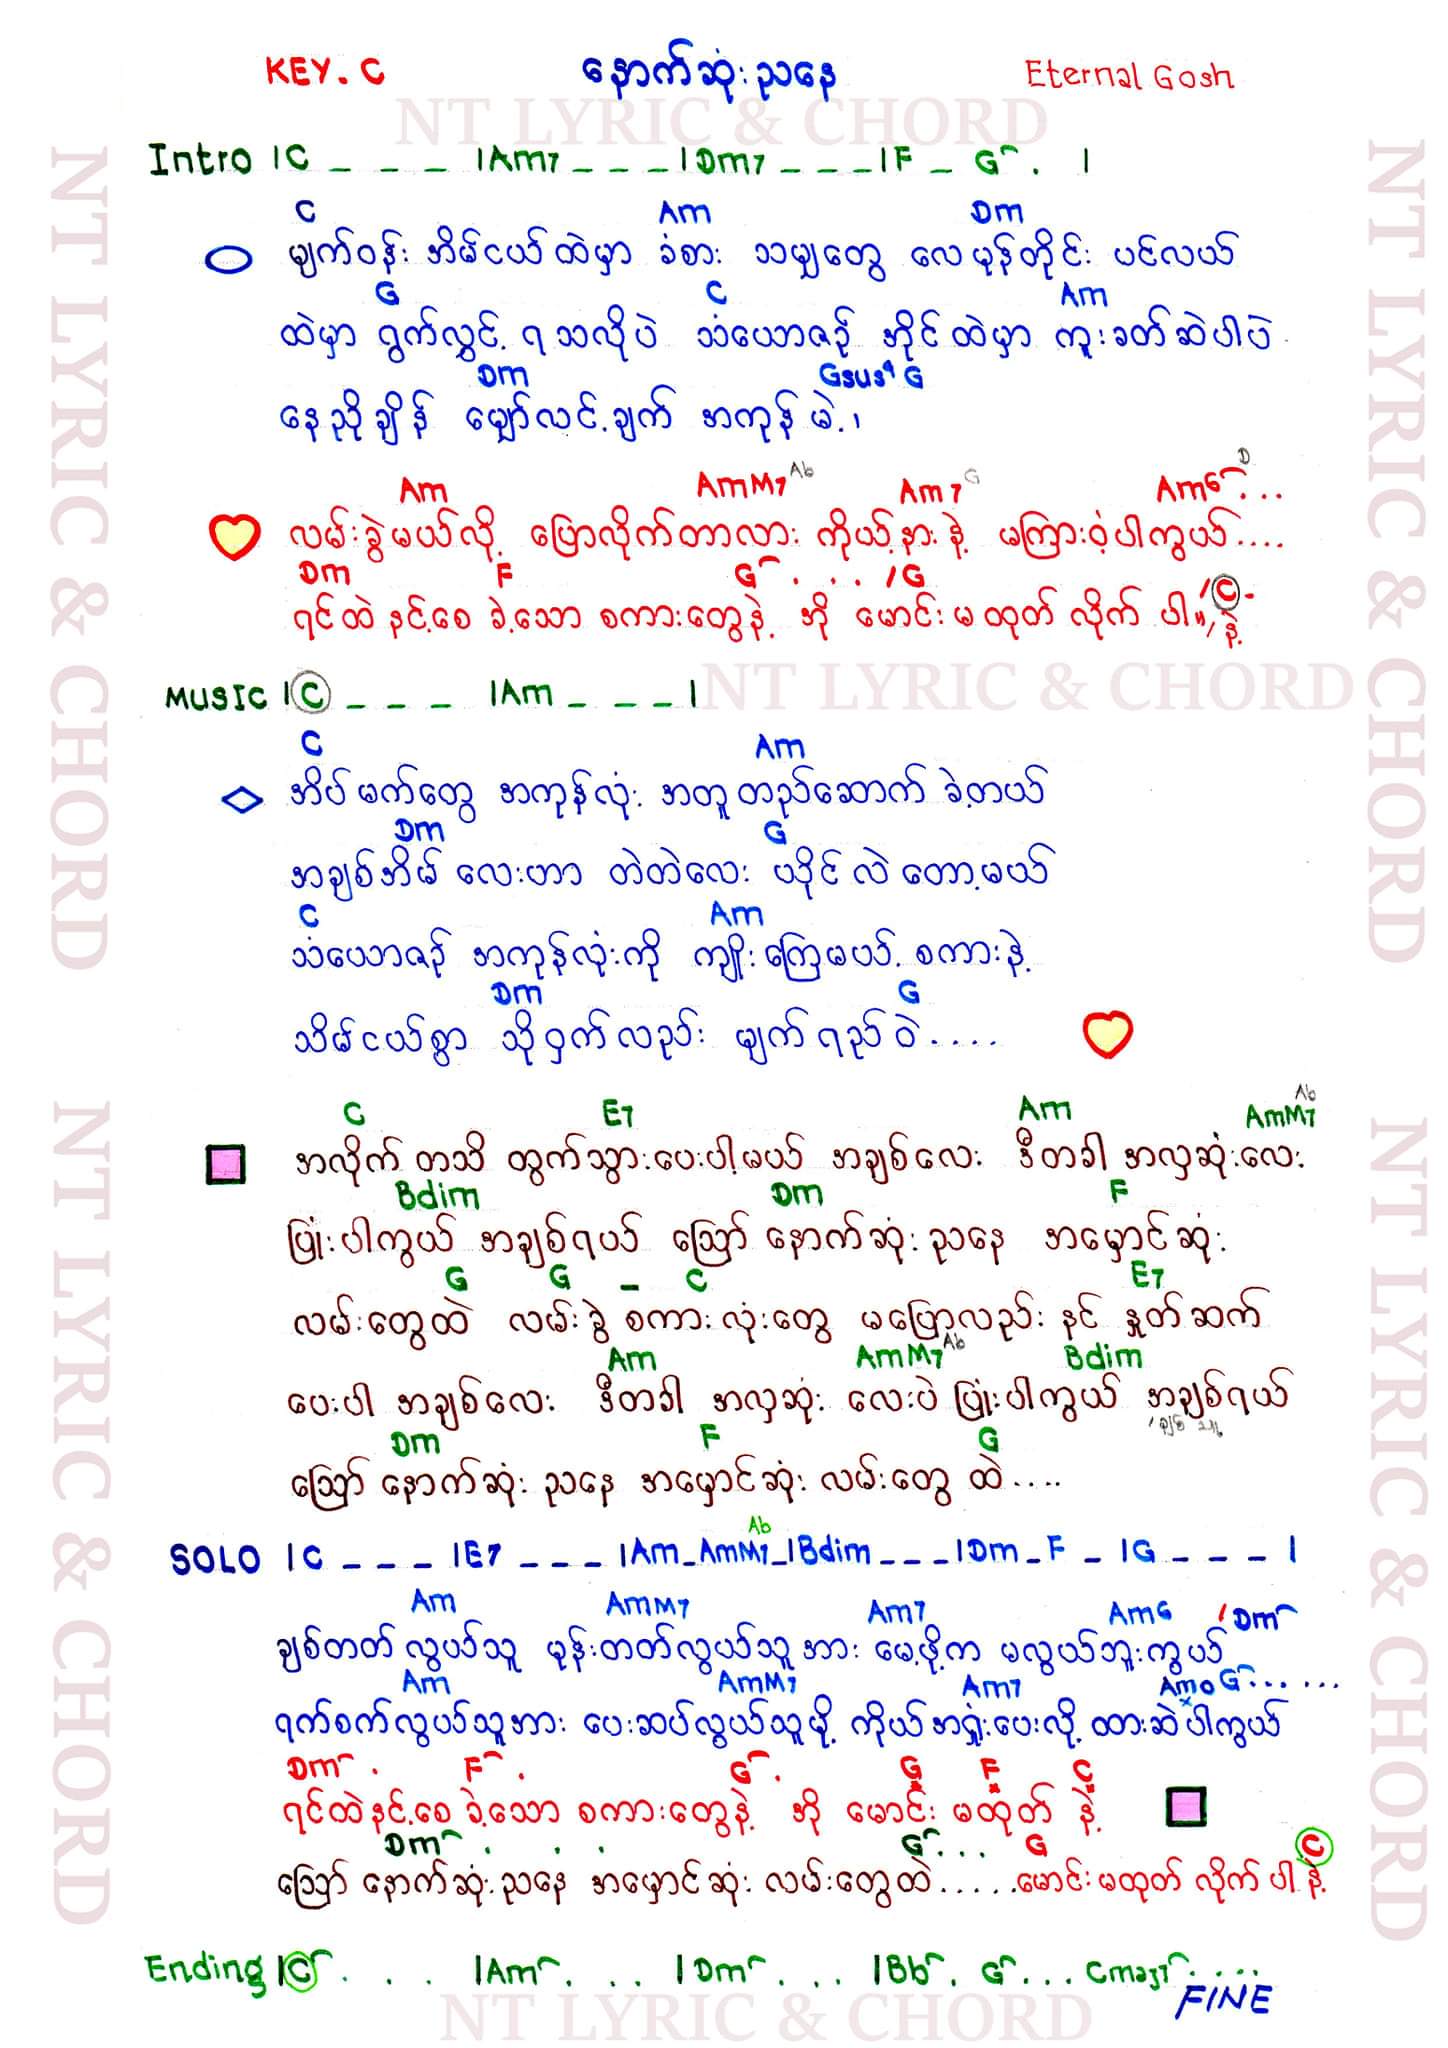 KEY. C နောက်ဆုံးညနေ Eternal Gosh
NT LYRIC & CHORD
Intro |C _ _ _ |Am7 _ _ _ |Dm7 _ _ _ |F _ G . |
C Am Dm
မျက်ဝန်း အိမ်ငယ်ထဲမှာ ခံစား သမျှတွေ လေမုန်တိုင်း ပင်လယ်
G C Am
ထဲမှာ ရွက်လွှင့် ရသလိုပဲ သံယောဇဉ် အိုင်ထဲမှာ ကူးခတ်ဆဲပါပဲ
Dm Gsus4 G
နေညိုချိန် မျှော်လင့်ချက် အကုန်မဲ့၊
Am AmM7 Ab Am7 G Am6 D ...
လမ်းခွဲမယ်လို့ ပြောလိုက်တာလား ကိုယ့်နားနဲ့ မကြားဝံ့ပါကွယ်....
Dm F G . . . / G / C -
ရင်ထဲနင့်စေ ခဲ့သော စကားတွေနဲ့ အို မောင်းမထုတ် လိုက် ပါ "/ နဲ့
MUSIC |C _ _ _ |Am _ _ _ |
NT LYRIC & CHORD
C Am
အိပ်မက်တွေ အကုန်လုံး အတူတည်ဆောက် ခဲ့တယ်
Dm G
အချစ်အိမ် လေးဟာ တဲတဲလေး ယိုင်လဲ တော့မယ်
C Am
သံယောဇဉ် အကုန်လုံးကို ကျိုးကြေမယ့် စကားနဲ့
Dm G
သိမ်ငယ်စွာ သိုဝှက်လည်း မျက်ရည်ဝဲ....
C E7 Am AmM7 Ab
အလိုက်တသိ ထွက်သွားပေးပါ့မယ် အချစ်လေး ဒီတခါ အလှဆုံးလေး
Bdim Dm F
ပြုံးပါကွယ် အချစ်ရယ် ဪ နောက်ဆုံးညနေ အမှောင်ဆုံး
G G – C E7
လမ်းတွေထဲ လမ်းခွဲ စကားလုံးတွေ မပြောလည်း နင် နှုတ်ဆက်
Am AmM7 Ab Bdim
ပေးပါ အချစ်လေး ဒီတခါ အလှဆုံး လေးပဲ ပြုံးပါကွယ် အချစ်ရယ်
Dm F G
ဪ နောက်ဆုံးညနေ အမှောင်ဆုံး လမ်းတွေ ထဲ....
SOLO |C _ _ _ |E7 _ _ _ |Am_AmM7 Ab_|Bdim _ _ _ |Dm_F _ |G _ _ _ |
Am AmM7 Am7 Am6 / Dm
ချစ်တတ်လွယ်သူ မုန်းတတ်လွယ်သူအား မေ့ဖို့က မလွယ်ဘူးကွယ်
Am AmM7 Am7 Am6 G ......
ရက်စက်လွယ်သူအား ပေးဆပ်လွယ်သူမို့ ကိုယ်အရှုံးပေးလို့ ထားဆဲပါကွယ်
Dm . F . G . G F C
ရင်ထဲနင့်စေ ခဲ့သော စကားတွေနဲ့ အို မောင်း မထုတ် နဲ့
Dm . . . G ... G C
ဪ နောက်ဆုံးညနေ အမှောင်ဆုံး လမ်းတွေထဲ.....မောင်းမထုတ် လိုက်ပါ နဲ့
Ending |C . . . |Am . . . |Dm . . . |Bb . G ... Cmaj7 ....
FINE
NT LYRIC & CHORD
NT LYRIC & CHORD
NT LYRIC & CHORD
NT LYRIC & CHORD
NT LYRIC & CHORD